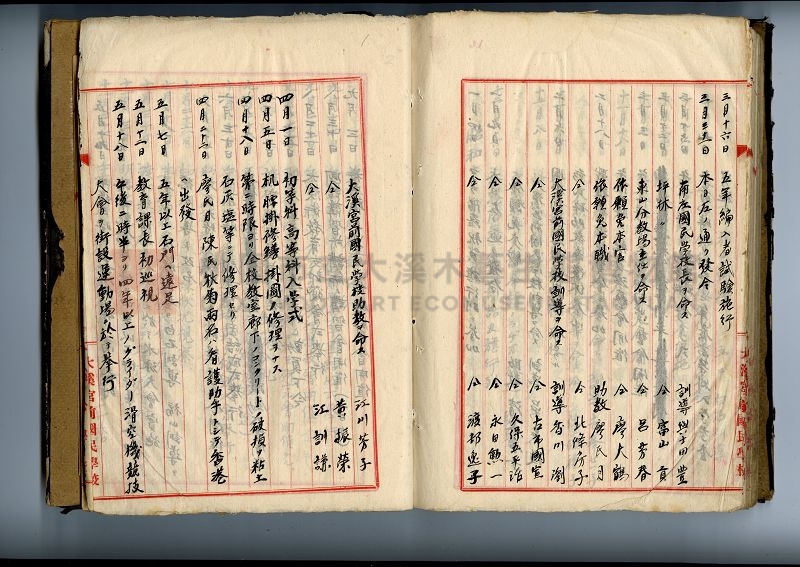 三月十六日 五年編入者試驗施行
三月三十一日 本日左ノ通リ發令
南庄國民學校長ヲ命ス 訓導 與十田豊
坪林〃 仝 富山貢
東山分教場主任ヲ命ス 仝 呂芳春
依願免本官 仝 廖大鶴
依願免本職 助教 廖氏月
仝 北條房子
大溪宮前國民學校訓導ヲ命ス 訓導 香川瀏
仝 仝 古市國宝
仝 仝 久保五平治
仝 仝 永田勲一
仝 仝 渡部逸子
大溪宮前國民學校助教ヲ命ス 江川芳子
仝 黄振榮
仝 江訓謙
四月一日 初等科高等科入學式
四月五日 机腰掛修繕掛圖ノ修理ヲナス
四月十八日 第二時限ヨリ全校教室廊下ノコンクリートノ破損ヲ粘土
石灰塩等デ修理セリ
四月二十二日 廖氏月 陳氏秋菊両名ハ看護助手トシテ香港
ヘ出發
五月七日 五年以上石門ヘ遠足
五月十二日 教育課長初巡視
五月十八日 午後二時半ヨリ四年以上ノグライダー滑空機競技
大會ヲ街設運動場ニ於テ擧行
大溪宮前國民學校
大溪宮前國民學校
大溪木藝生態博物館
DAXI WOOD ART ECOMUSEUM, TAOYUAN